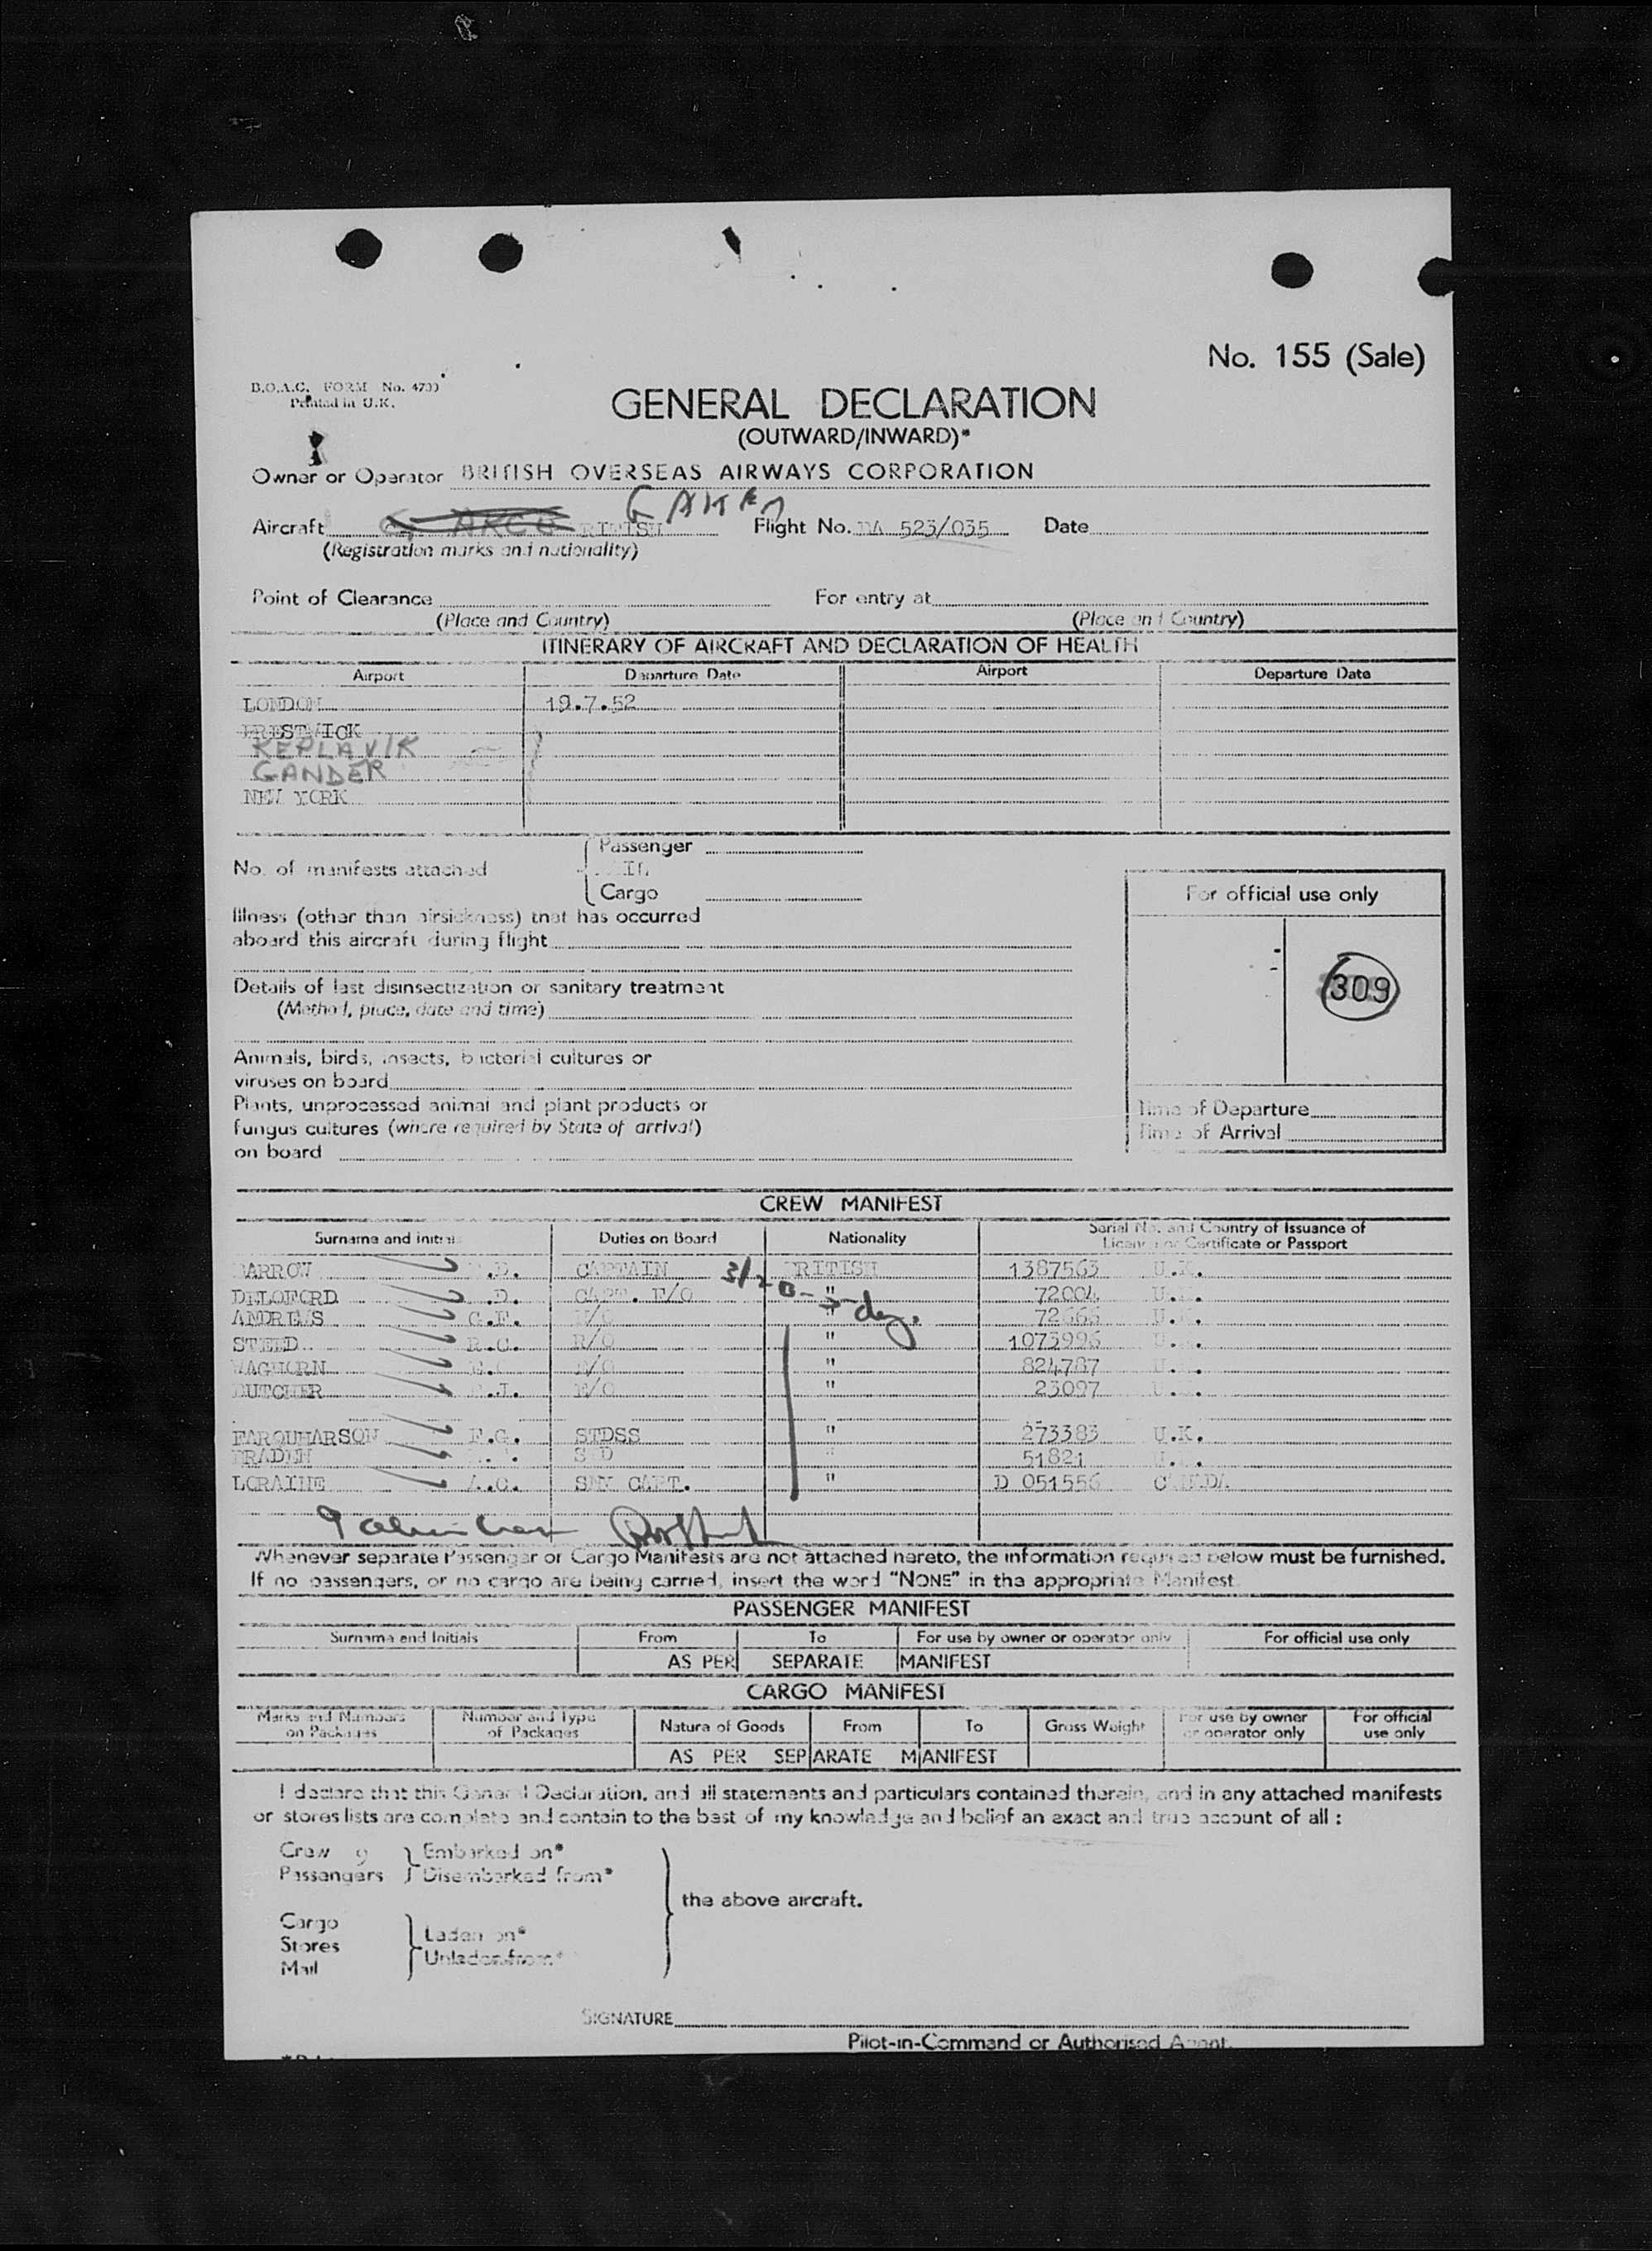 No. 155 (Sale)
B.O.A.C. FORM No.
Printed in U.K.
GENERAL DECLARATION
(OUTWARD/INWARD)*
Owner or Operator BRITISH OVERSEAS AIRWAYS CORPORATION
Aircraft Flight No. 523/035 Date
(Registration marks and nationality)
Point of Clearance For entry at
(Place and Country) (Place and Country)
ITINERARY OF AIRCRAFT AND DECLARATION OF HEALTH
Airport Departure Date Airport Departure Date
LONDON 19.7.52
PRESTWICK
KEPLAVIK
GANDER
NEW YORK
Passenger
No. of manifests attached
Cargo
For official use only
Illness (other than airsickness) that has occurred
aboard this aircraft during flight
309
Details of last disinsectization or sanitary treatment
(Method, place, date and time)
Animals, birds, insects, bacterial cultures or
viruses on board
Plants, unprocessed animal and plant products or
fungus cultures (where required by State of arrival)
on board
Time of Departure
Time of Arrival
CREW MANIFEST
Surname and initials Duties on Board Nationality Serial No. and Country of Issuance of
Licence or Certificate or Passport
BARROW CAPTAIN BRITISH 1387563 U.K.
DELOFORD CAPT. F/O " 72004
ANDREWS G.F. " 72665
STEED R.C. R/O " 1073996
WAGHORN " 824787
BUTCHER " 23097
FARQUHARSON F.G. STDSS " 273383 U.K.
BRADEN " 51821
LORAINE A.G. SNY CAPT. " D 051556 CANADA
Whenever separate Passenger or Cargo Manifests are not attached hereto, the information required below must be furnished.
If no passengers, or no cargo are being carried, insert the word "NONE" in the appropriate Manifest
PASSENGER MANIFEST
Surname and Initials From To For use by owner or operator only For official use only
AS PER SEPARATE MANIFEST
CARGO MANIFEST
Marks and Numbers on Packages Number and Type of Packages Nature of Goods From To Gross Weight For use by owner or operator only For official use only
AS PER SEPARATE MANIFEST
I declare that this General Declaration, and all statements and particulars contained therein, and in any attached manifests
or stores lists are complete and contain to the best of my knowledge and belief an exact and true account of all :
Crew 9 Embarked on*
Passengers Disembarked from*
the above aircraft.
Cargo
Stores Laden on*
Mail Unladen from*
SIGNATURE
Pilot-in-Command or Authorised Agent.